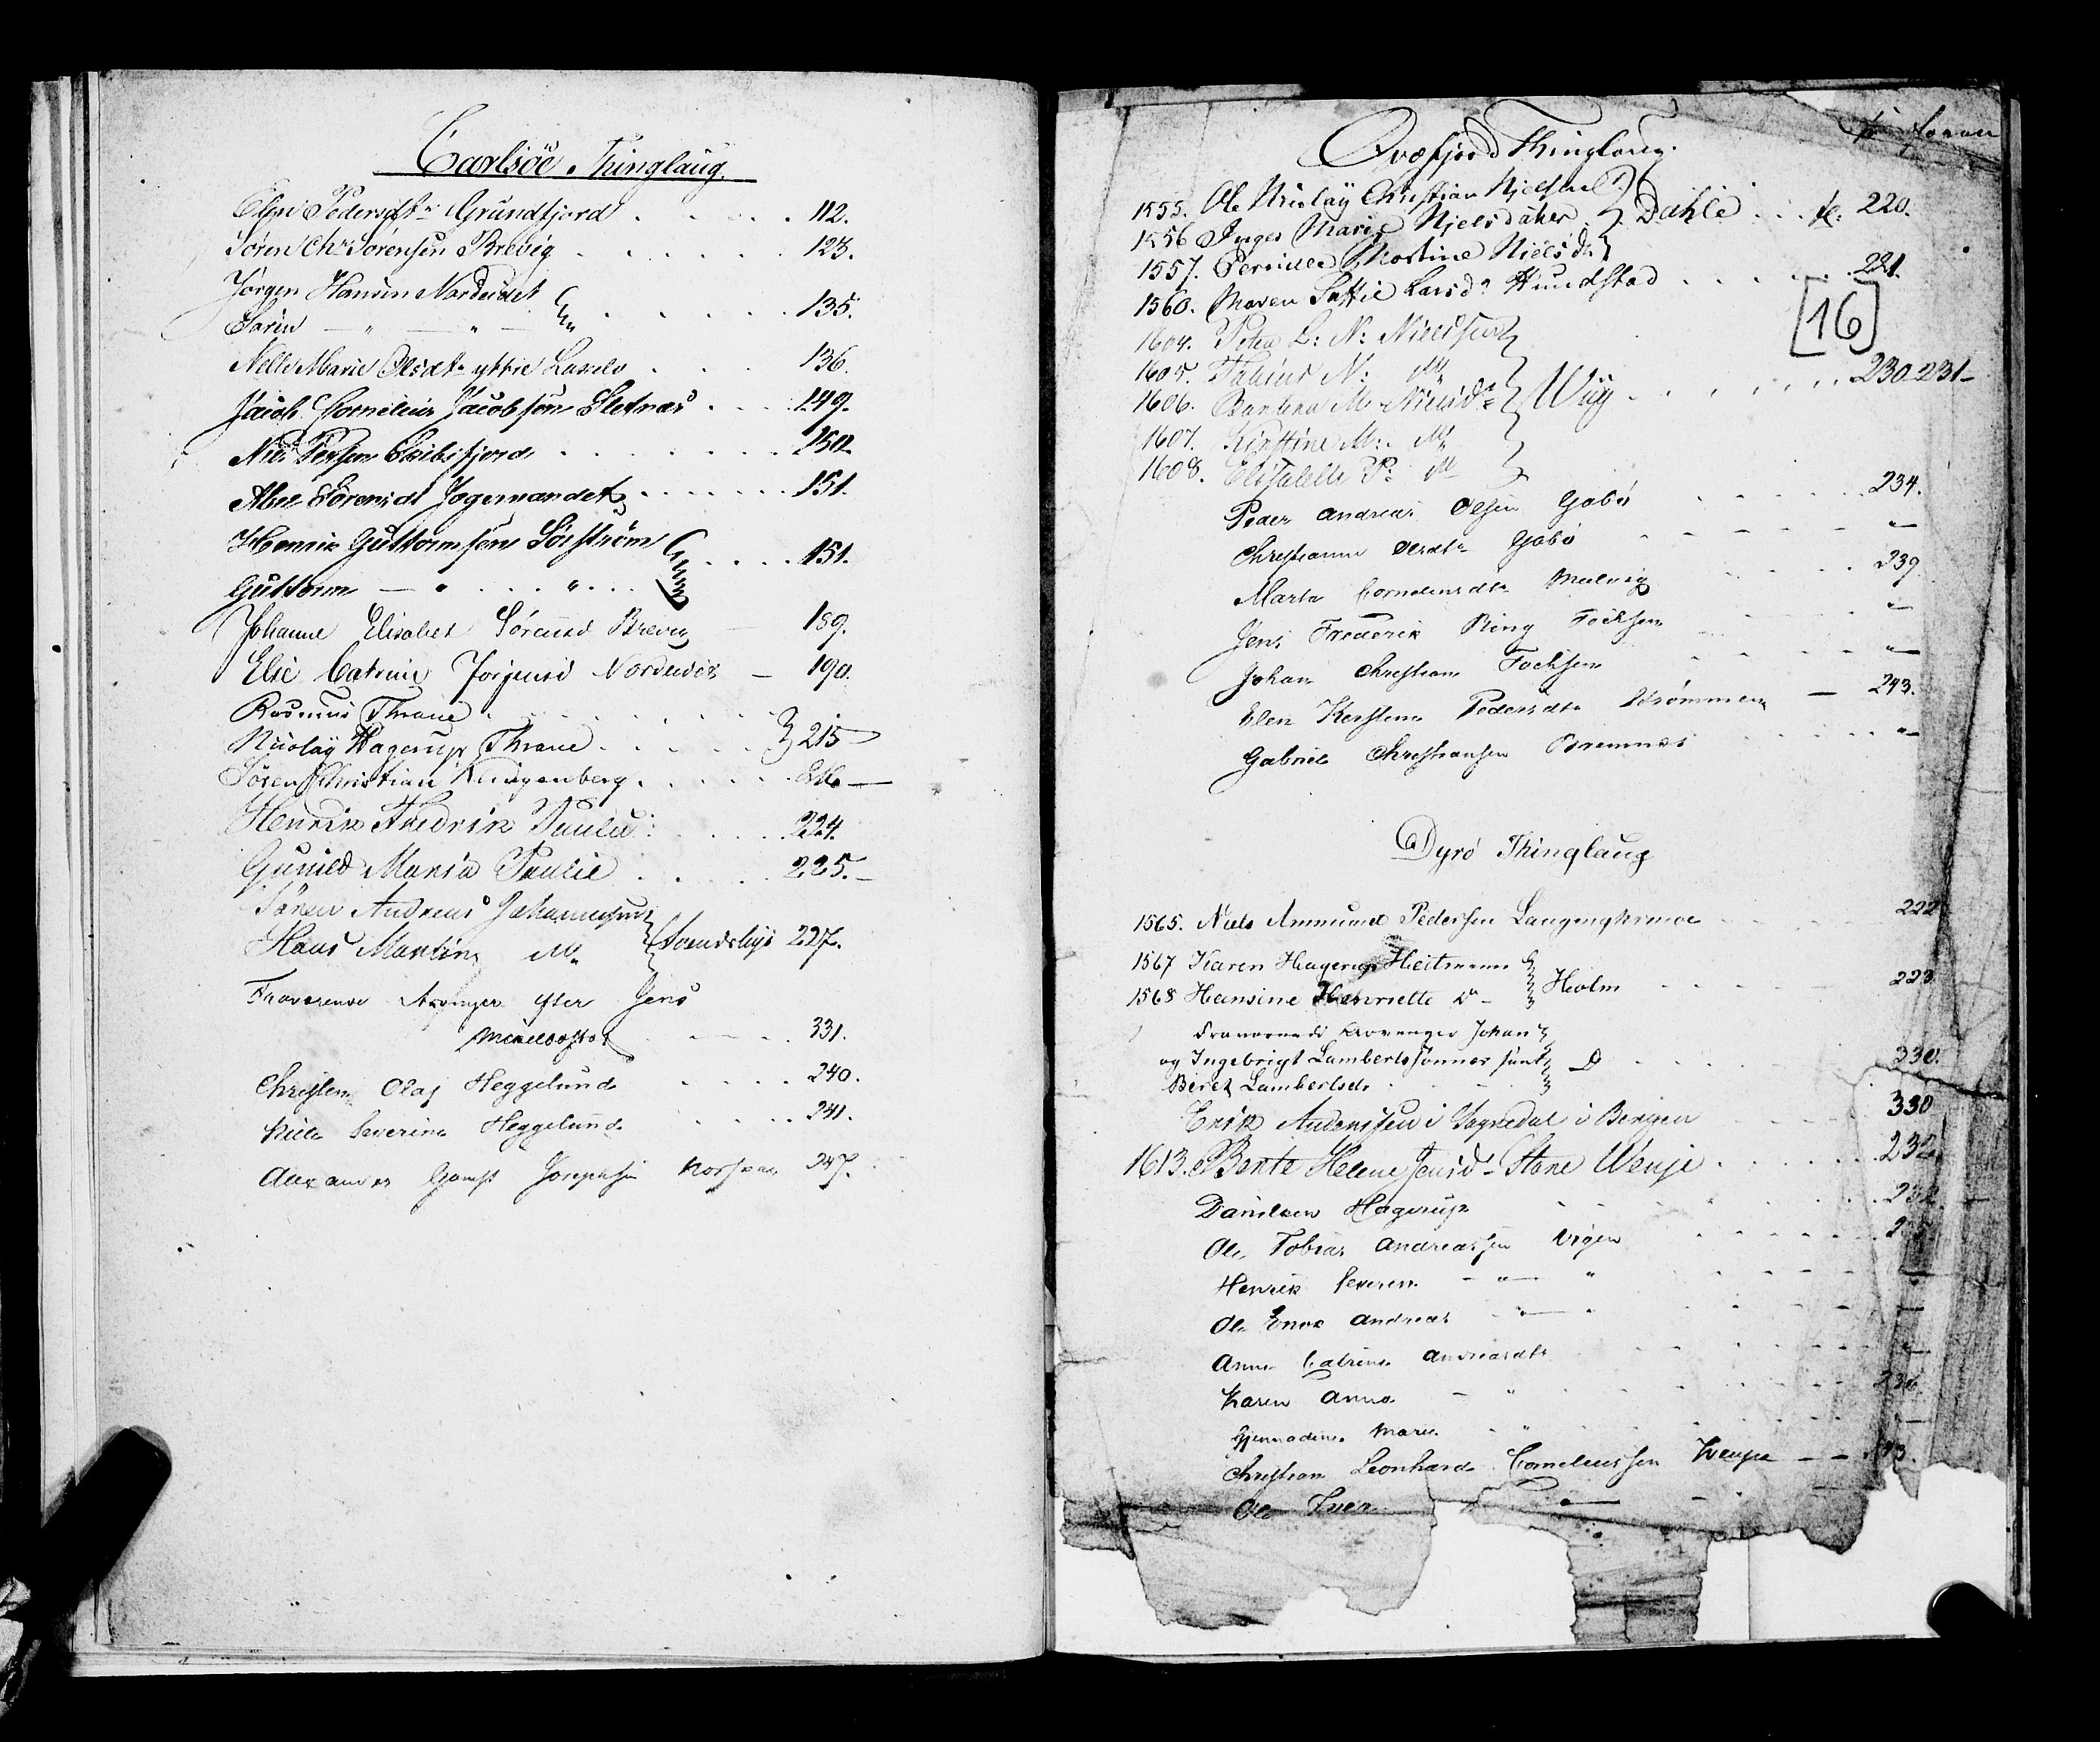 Carlsöe Thinglaug.
Elen Pedersdtr Grundfjord . . . . . 112.
Sören Chr. Sörensen Brevig . . . . . . 123.
Jörgen Hansen Nordeidet
Sarin — " — " — . . . . . 135.
Nelle Marie Olsdtr yttre . . . 136.
Jacob Cornelius Jacobsen Sletnæs . . . 149.
Niels Persen Skibsfjord . . . . . . . 150.
Abel Sörensdt Jægervandet . . . . . . 151.
Henrik Guttormsen Sörström
Guttorm — " . . . " . . . . . . . 151.
Johanne Elisabet Sörensd Brevig — 189.
Else Catrine Jörjensd Nordeidet — 190.
Rasmus Thrane . . . . . .
Nicolay Hagerup Thrane . . . . . 215
Sören Christian Klingenberg . . . . 216 —
Henrik Fredrik . . . . 224.
Gunild Maria . . . . 225. —
Sören Andreas Johannessen
Hans Martin 227.
Fraværende Arvinger efter Jens
. . . . 331.
Christen Olaj Heggelund . . . . 240.
Severine Heggelund . . . . 241.
Alexander Gamst Josephsen 247.
foran
Qvæfjord Thinglaug.
1555. Ole Nicolay Christian Nielsen
1556 Inger Marie Nielsdatter Dahle . . . 220.
1557. Pernille Martine Nielsdr
1560. Maren Larsdr Hundstad . . . . . . . 221.
[16]
1604. Peter L: N: Nielsen
1605. N:
1606. M. Nielsdr . . . . . . . 230-231-
1607. Kirstine M:
1608. Elisabeth P:
Peder Andreas Olsen Gabö . . . . . . 234.
Christianne Olsdtr Gabö - - - - - "—
Marta Corneliusdtr . . . . . 239
Jens Frederik Ring Fochsen . . . . . "—
Johan Christian Fochsen . . . . . "—
Elen Kirstine Pedersdtr Strömmen — 243.
Gabriel Christiansen Bremnes . . . . . . "—
Dyrö Thinglaug
1565. Niels Ammund Pedersen . . . . 222
1567 Karen Hagerup Heitmann
1568 Hansine Henriette Do - Holm . . . . . 223.
Fraværende Arvinger Johan
og Ingebrigt Lambertssönner samt
Beret Lambertsdr . . . . . . . 330.
Erik Anderssen i Sognedal i Bergen . . . . 330
1613. Bente Helene Jensd- Store Wenje . . . . . . 232.
Danilsen Hagerup . . . . . . 232
Ole Tobias Andreassen Vigen . . . . . .
Henrik Severin - "— " . . . . . —
Ole Enok Andreas - "— " . . . . . —
Anne Catrine Andreasdtr . . . . . . "—
Karen Anna — " . . . . . .
Marie - " . . . . . . "—
Christian Leonhard Corneliussen Wenje — —
Ole — " —